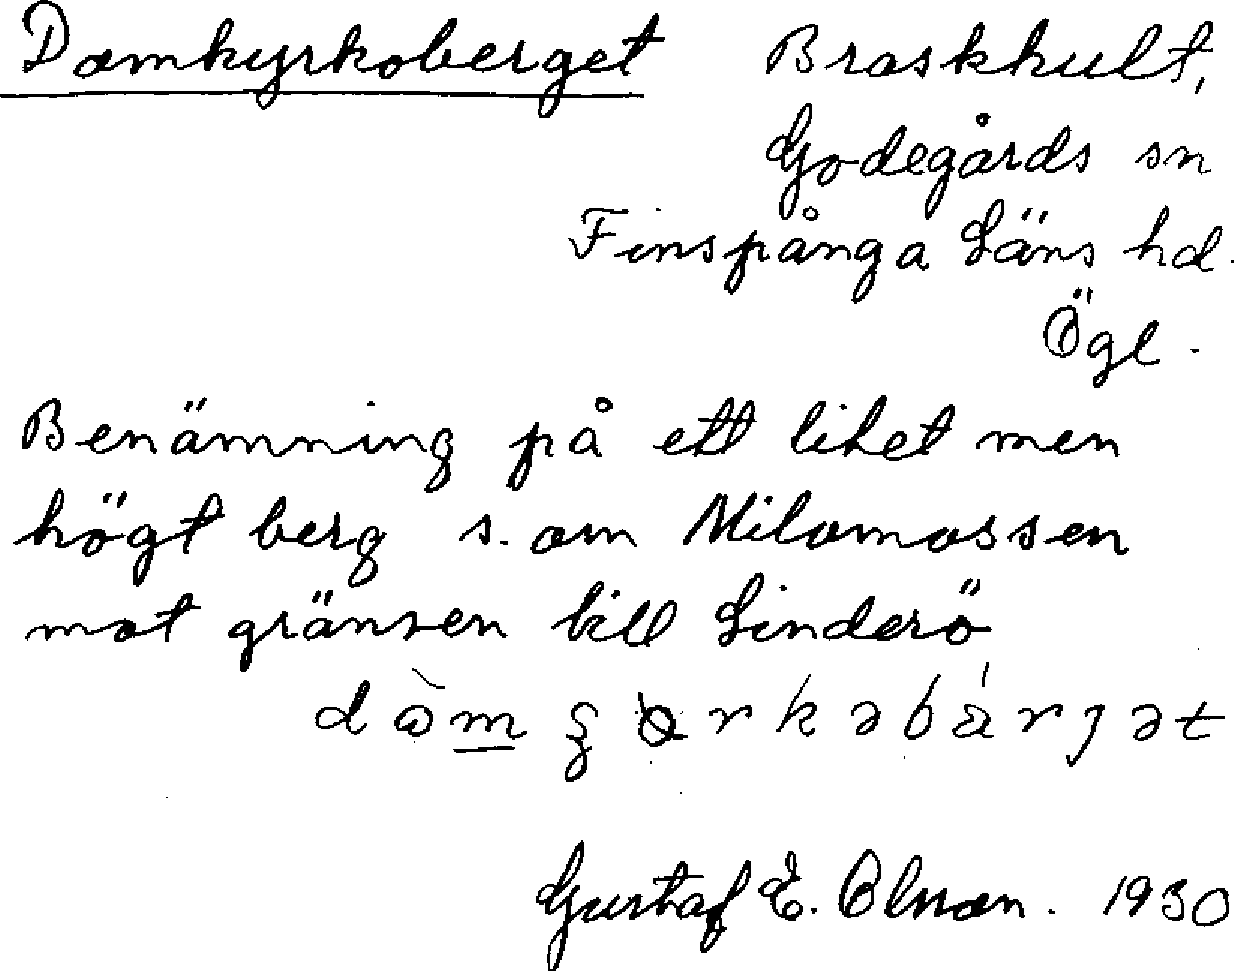 Domkyrkoberget Braskhult,
Godegårds sn
Finspånga Läns hd.
Ögl.
Benämning på ett litet men
högt berg s. om Milomossen
mot gränsen till Linderö
Gustaf E. Olsson. 1930